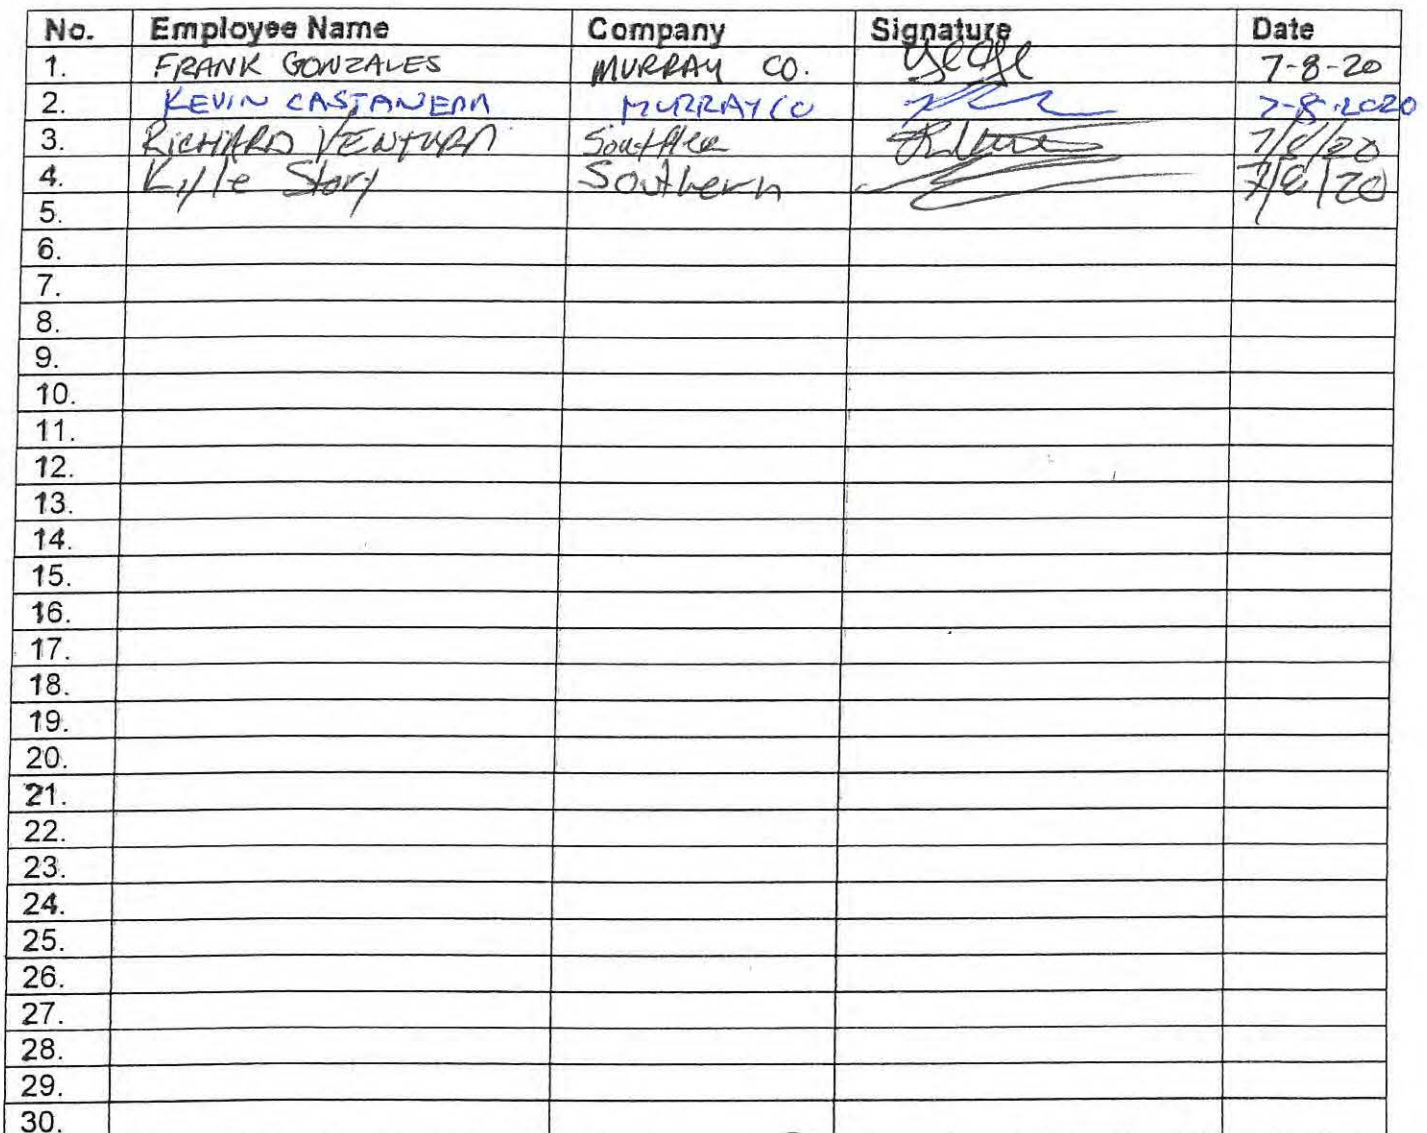 No. Employee Name Company Signature Date
1. FRANK GONZALES MURRAY CO. 7-8-20
2. KEVIN CASTANEDA MURRAY CO 7-8-2020
3. RICHARD VENTURA 7/8/20
4. Kylle Story Southern 7/8/20
5.
6.
7.
8.
9.
10.
11.
12.
13.
14.
15.
16.
17.
18.
19.
20.
21.
22.
23.
24.
25.
26.
27.
28.
29.
30.